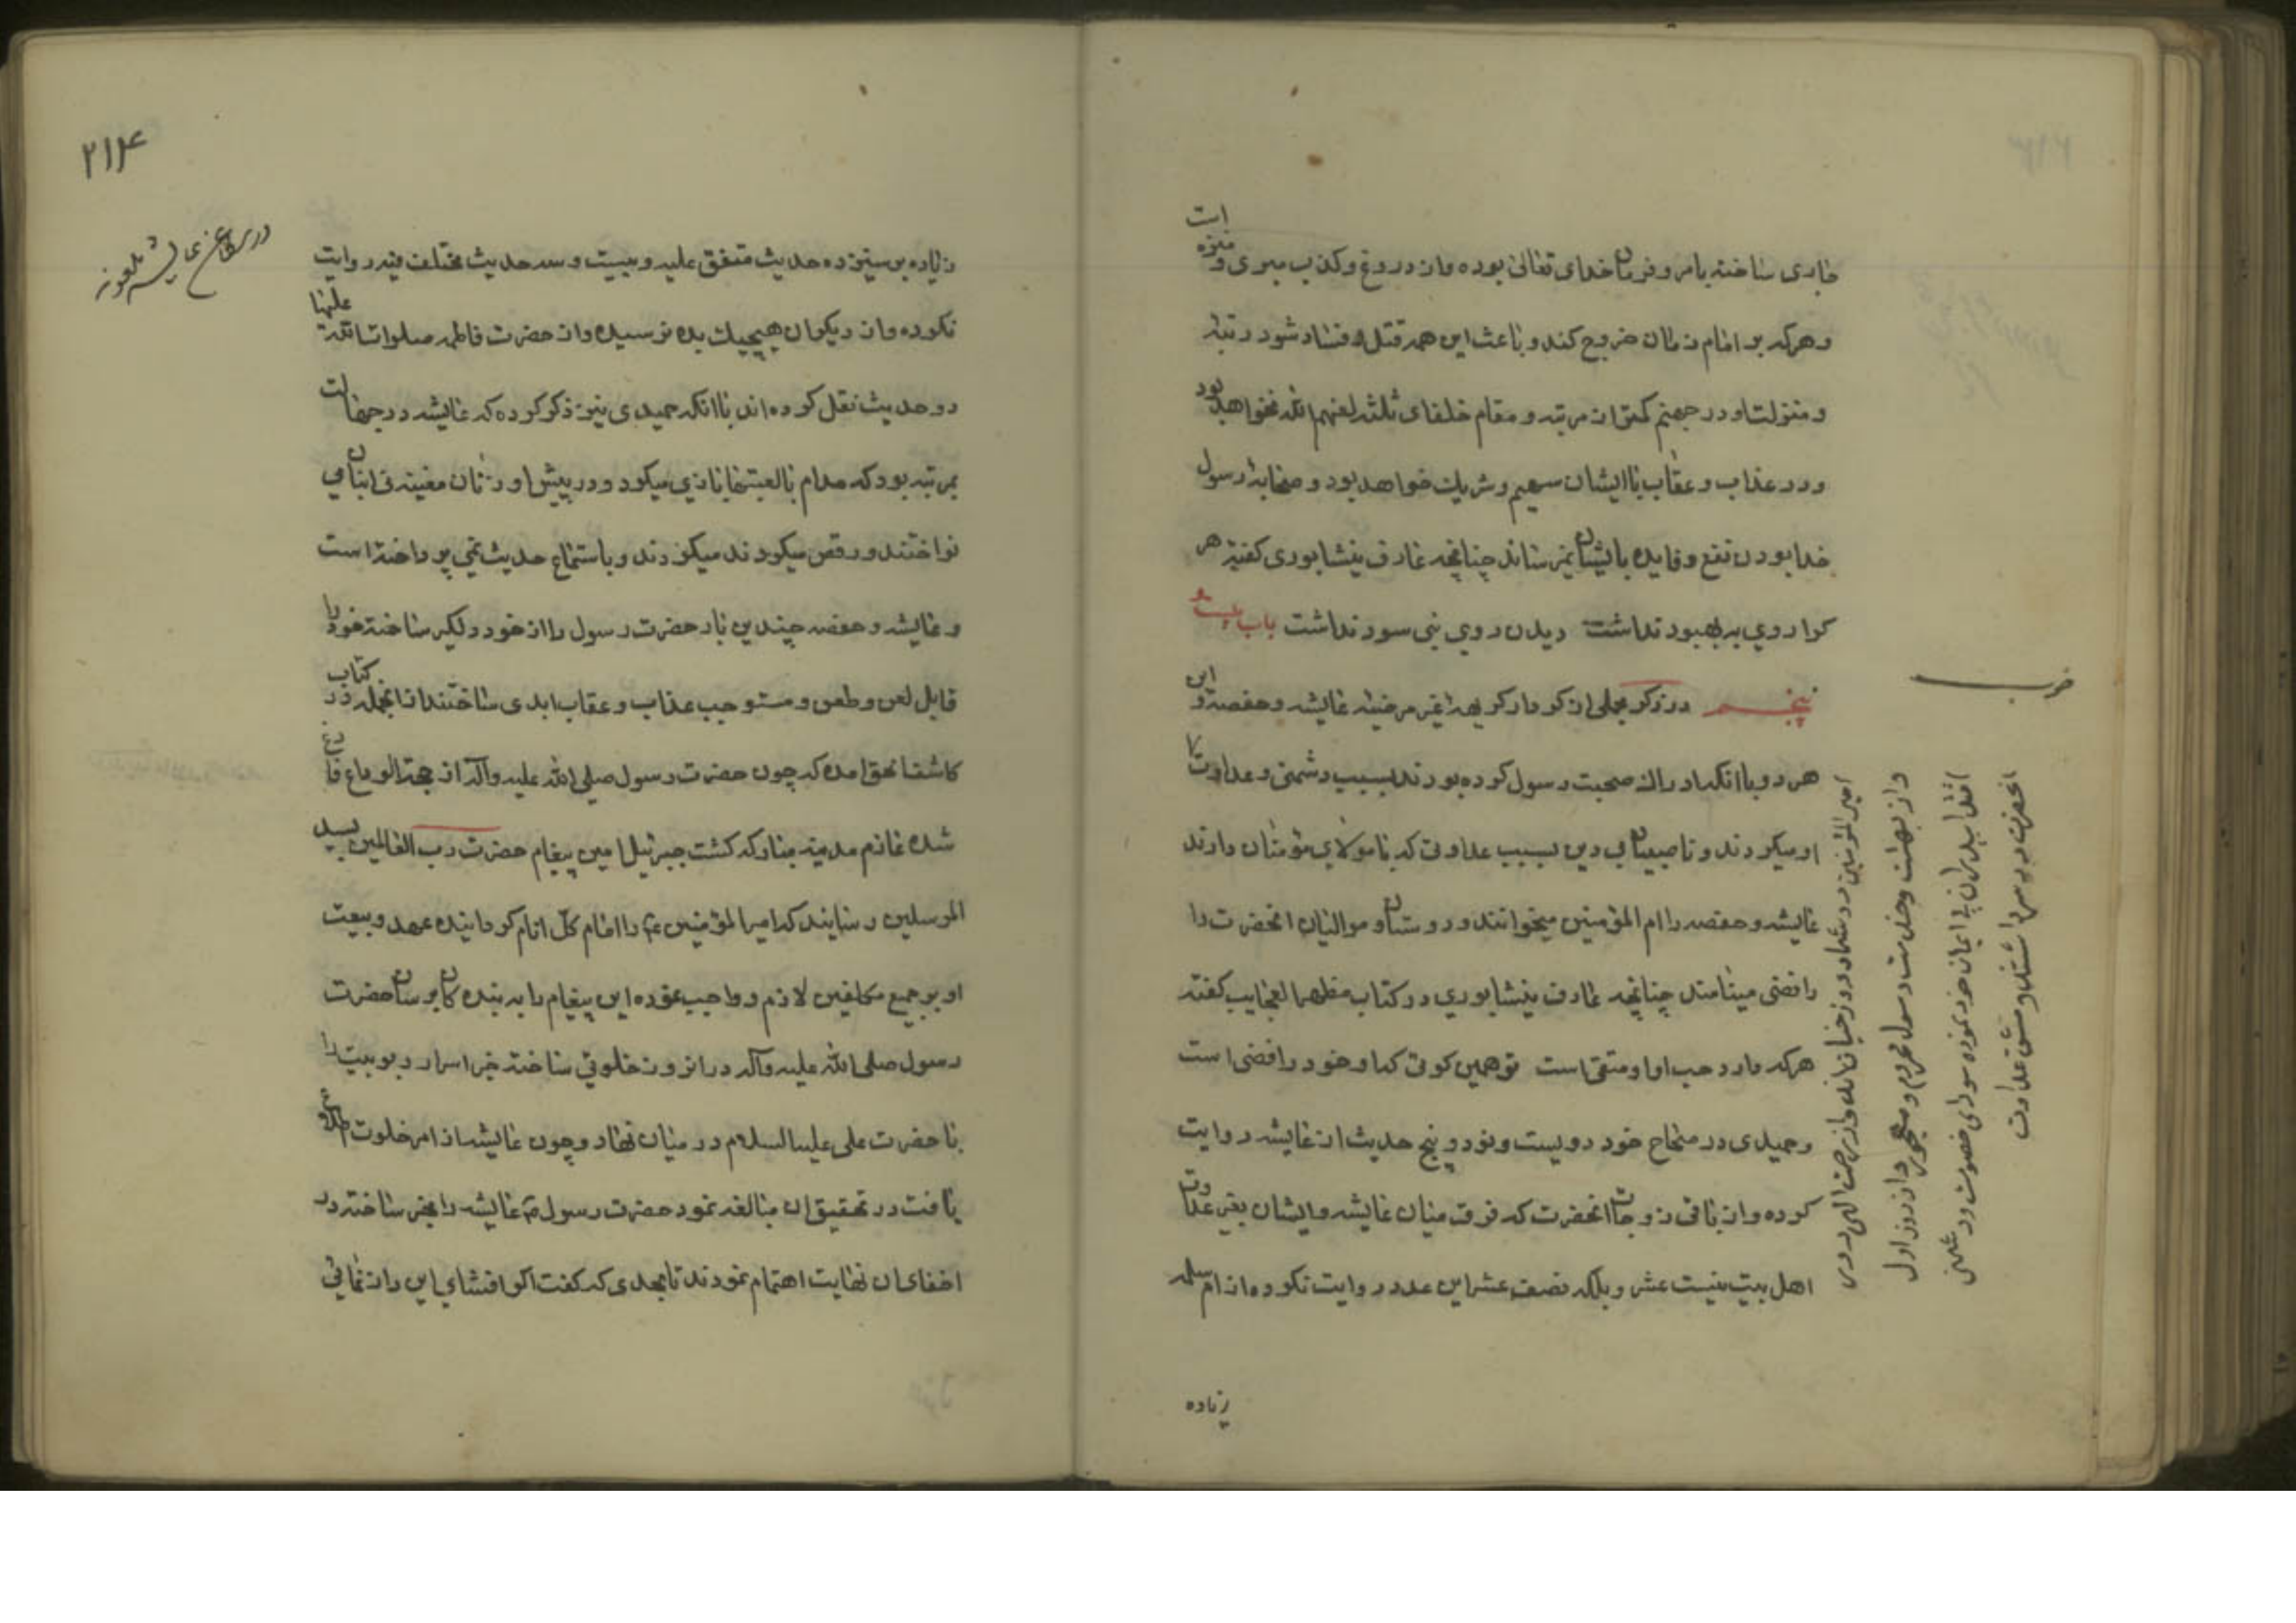 جاری ساخته بامر و فرمان خدای تعالی بوده و از دروغ و کذب مبری و منزه است
و هر که بر امام زمان خروج کند و باعث این همه قتل و فساد شود رتبه
و منزلت او در جهنم کمتر از مرتبه و مقام خلفای ثلثه لعنهم الله نخواهد بود
و در عذاب و عقاب با ایشان سهیم و شریک خواهد بود و صحابهٔ رسول
خدا بودن نفع و فایده بایشان نمیرساند چنانچه عارف نیشابوری کفته هر
کرا روی به بهبود نداشت دیدن روی نبی سود نداشت باب بیست و
پنجم در ذکر مجملی از کردار کریهه غیر مرضیه عایشه و حفصه و این
هر دو با انکه ادراک صحبت رسول کرده بودند بسبب دشمنی و عداوت با
او میکردند و ناصبیان بی دین بسبب عداوتی که با مولای مؤمنان دارند
عایشه و حفصه را ام المؤمنین میخوانند و دوستان و موالیان انحضرت را
رافضی مینامند چنانچه عارف نیشابوری در کتاب مظهر العجایب کفته
هر که دارد حب او او متقی است تو همین کوئی که او خود رافضی است
و حمیدی در صحاح خود دویست و نود و پنج حدیث از عایشه روایت
کرده و از باقی زوجات انحضرت که فرق میان عایشه و ایشان بغیر عداوت
اهل بیت نیست عشر و بلکه نصف عشر این عدد روایت نکرده از ام سلمه
زیاده
امیر المؤمنین در دنیا و در زجان اند و از رحمت الهی دوری
و از و خدمت رسول محروم و مهجور از روز اول
اقتدا پدران بی ایمان خود نموده سودای خصومت و دشمنی
انحضرت در سر داشتند و مشق عداوت
۲۱۴
زیاده بر سیزده حدیث متفق علیه و بیست و سه حدیث مختلف فیه روایت
نکرده و از دیکران هیچیک بده نرسیده و از حضرت فاطمه صلوات الله علیها
دو حدیث نقل کرده اند با انکه حمیدی نیز ذکر کرده که عایشه در جهالت
بمرتبه بود که مدام با لعبتها بازی میکرد و در پیش او زنان مغنیه نی انبان می
نواختند و رقص میکردند میکردند و باستماع حدیث نمی پرداخته است
و عایشه و حفصه چندین بار حضرت رسول را از خود دلکیر ساخته خود را
قابل لعن و طعن و مستوجب عذاب و عقاب ابدی ساختند از انجمله در کتاب
کاشف الحق امده که چون حضرت رسول صلی الله علیه وآله از حجة الوداع فارغ
شده عازم مدینه مبارکه کشت جبرئیل امین پیغام حضرت رب العالمین بسید
المرسلین رسانید که امیر المؤمنین ع را امام کل انام کردانیده عهد و بیعت
او بر جمیع مکلفین لازم و واجب نموده این پیغام را به بندهکان برسان حضرت
رسول صلی الله علیه وآله در انروز خلوتی ساخته خبر اسرار ربوبیت را
با حضرت علی علیه السلام در میان نهاد و چون عایشه از امر خلوت اطلاع
یافت در تحقیق ان مبالغه نمود حضرت رسول ص عایشه را مخبر ساخته در
اخفای ان نهایت اهتمام نمودند تا بحدی که کفت اکر افشای این راز نمائی